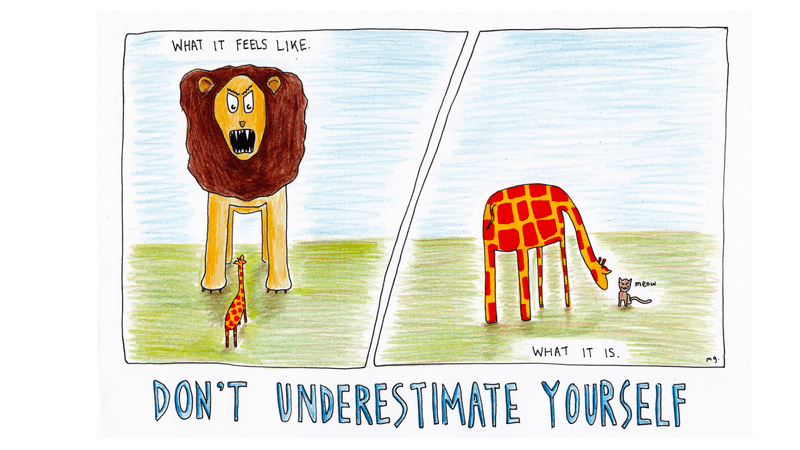 WHAT IT FEELS LIKE.
MEOW
WHAT IT IS.
mg.
DON'T UNDERESTIMATE YOURSELF